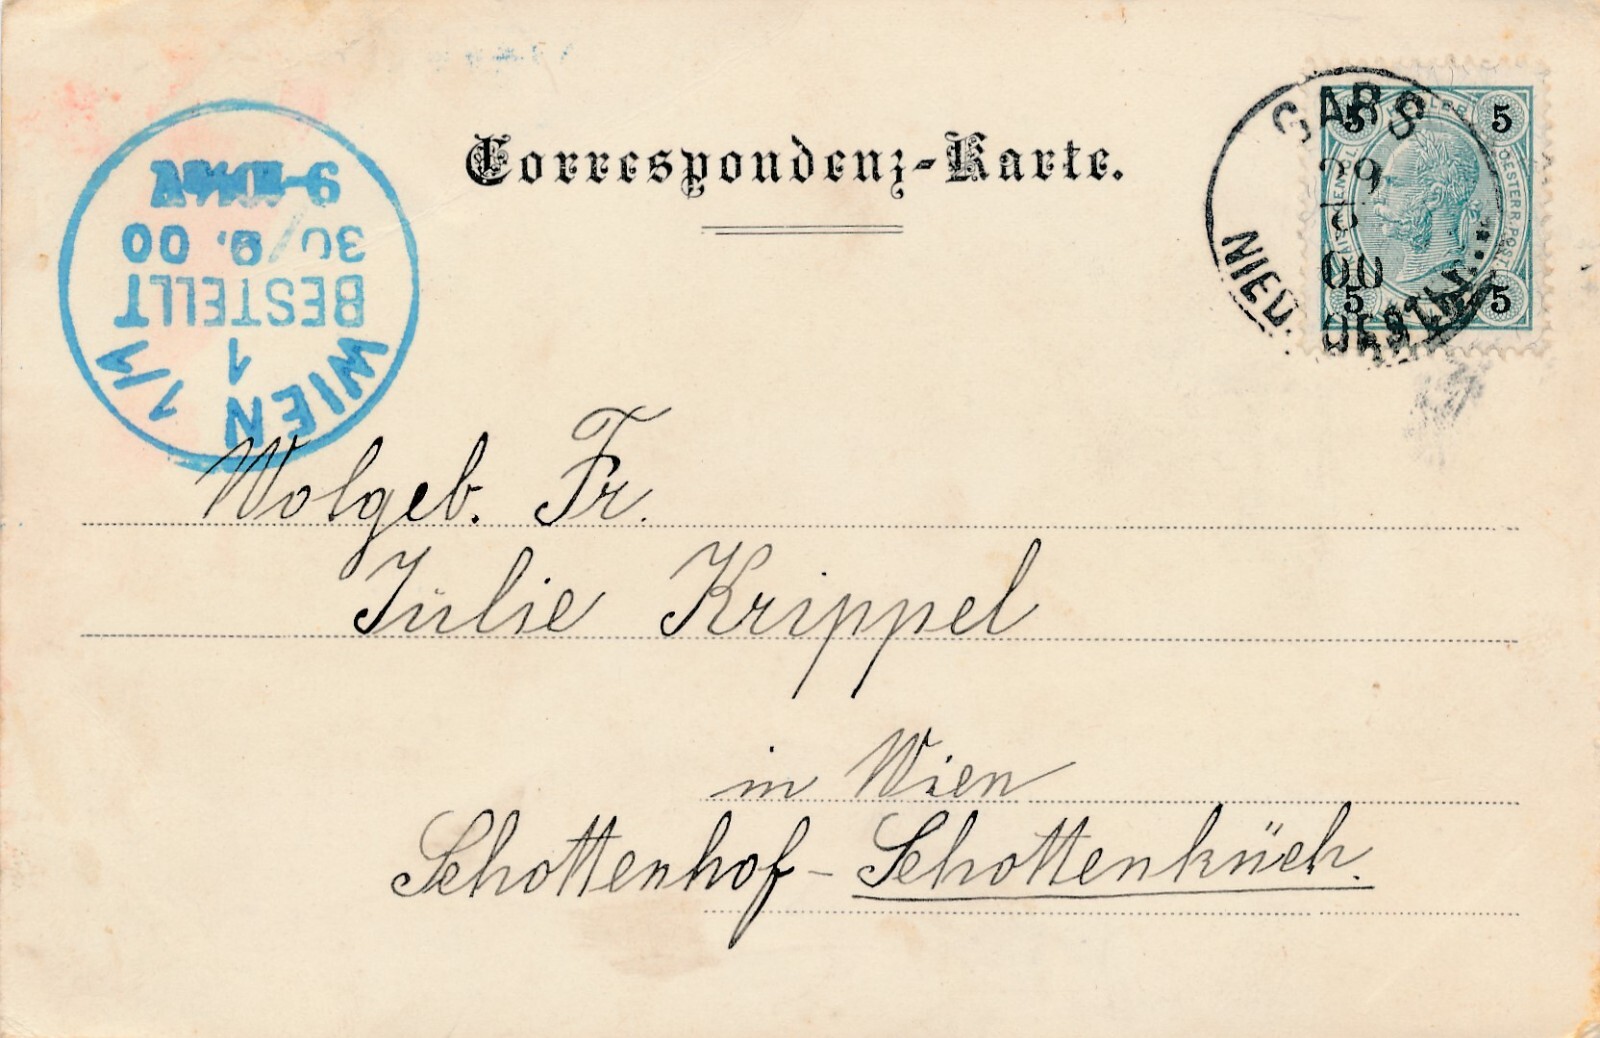 Correspondenz-Karte.
GARS
29
00
NIED. OESTERR.
5 5
5 5
WIEN 1/1
1
BESTELLT
30/9. 00
Wolgeb. Fr.
Julie Krippel
in Wien
Schottenhof - Schottenküch.